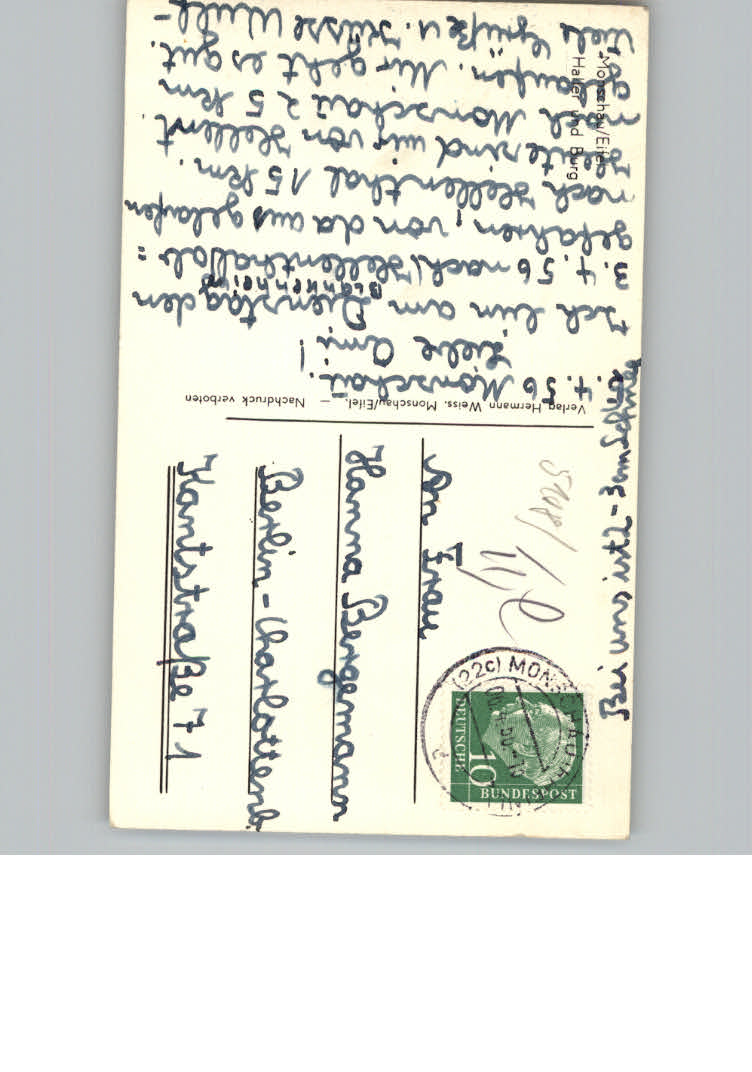 Monschau/Eifel
Haller und Burg
.4.56 Monschau.
Liebe Omi!
Ich bin am Dienstag den
Blankenheim
3.4.56 nach (Hellenthal) als=
gefahren, von da aus gelaufen
nach Hellenthal 15 km.
Heute sind wir von Hellent.
nach Monschau 25 km
gelaufen. Mir geht es gut.
Viele Grüße u. Küsse Wulf-
Bei uns ist 2-3 cm Schnee
Verlag Hermann Weiss. Monschau/Eifel. — Nachdruck verboten
An Frau
Hanna Bergemann
Berlin-Charlottenb
Kantstraße 71
(22c) MONSCHAU
DEUTSCHE
BUNDESPOST
10